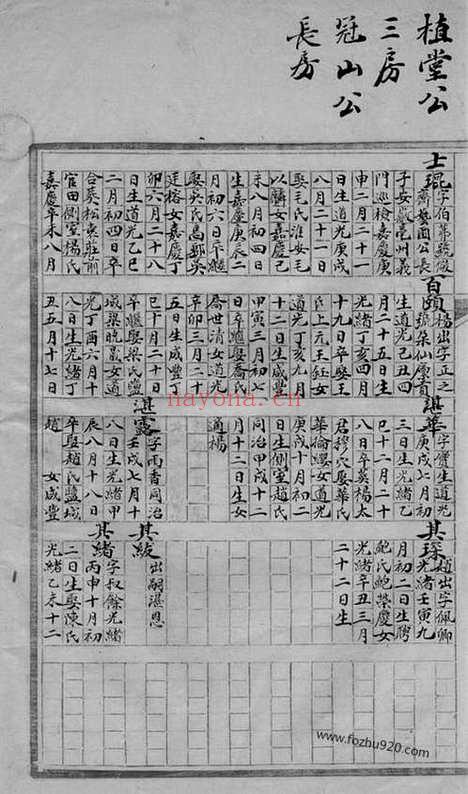 植堂公
三房
冠山公
長房
士琨字伯第號馥
齋塾圃公長
子安徽亳州義
門巡檢嘉慶庚
申二月二十一
日生道光庚戌
八月二十一日
娶毛氏淮安毛
以麟女嘉慶己
未八月初四日
生嘉慶庚辰二
月初六日卒繼
娶吳氏高郵吳
廷榕女嘉慶丁
卯六月二十八
日生道光乙巳
二月初四日卒
合葬松東莊前
官田側室楊氏
嘉慶辛未八月
百頤楊出字正之
號朵仙廩貢
生道光己丑四
月二十五日生
光緒丁亥四月
十九日卒娶王
氏上元王鈺女
道光丁亥九月
十二日生咸豐
甲寅三月初七
日卒繼娶喬氏
喬世清女道光
辛卯三月二十
五日生咸豐丁
巳十月二十日
卒繼娶梁氏鹽
城梁曉嵐女道
光丁酉六月十
八日生光緒丁
丑五月十七日
湛華字寶生道光
庚戌七月初
巳十二月二十
八日卒葬楊太
君穆穴娶華氏
華倫女道光
庚戌十月初二
日生側室趙氏
同治甲戌十二
月十二日生女
適楊
湛露字雨香同治
壬戌七月十
八日生光緒甲
辰八月十八日
卒娶趙氏鹽城
趙 女咸豐
其琛趙出字佩卿
光緒壬寅九
月初二日生聘
鮑氏鮑榮慶女
光緒辛丑三月
二十二日生
其紱出嗣湛恩
其緒字叔餘光緒
丙申十月初
二日生娶陳氏
光緒乙未十二
nayona.cn
www.fozhu920.com